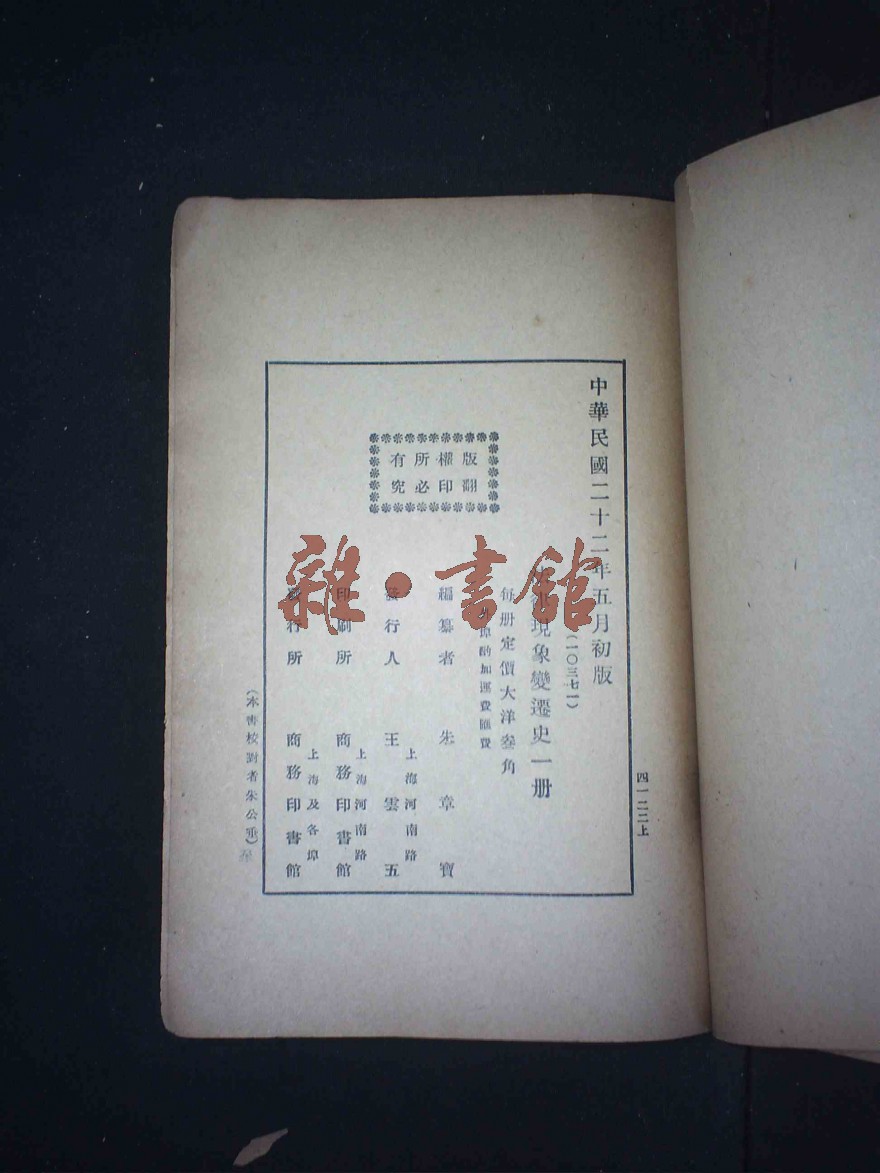 中華民國二十二年五月初版
四一二二上
(一〇三七一)
現象變遷史一册
每册定價大洋叁角
埠酌加運費匯費
編纂者 朱章寶
發行人 王雲五
上海河南路
印刷所 商務印書館
上海河南路
發行所 商務印書館
上海及各埠
版權所有
翻印必究
(本書校對者朱公垂)
雜·書館